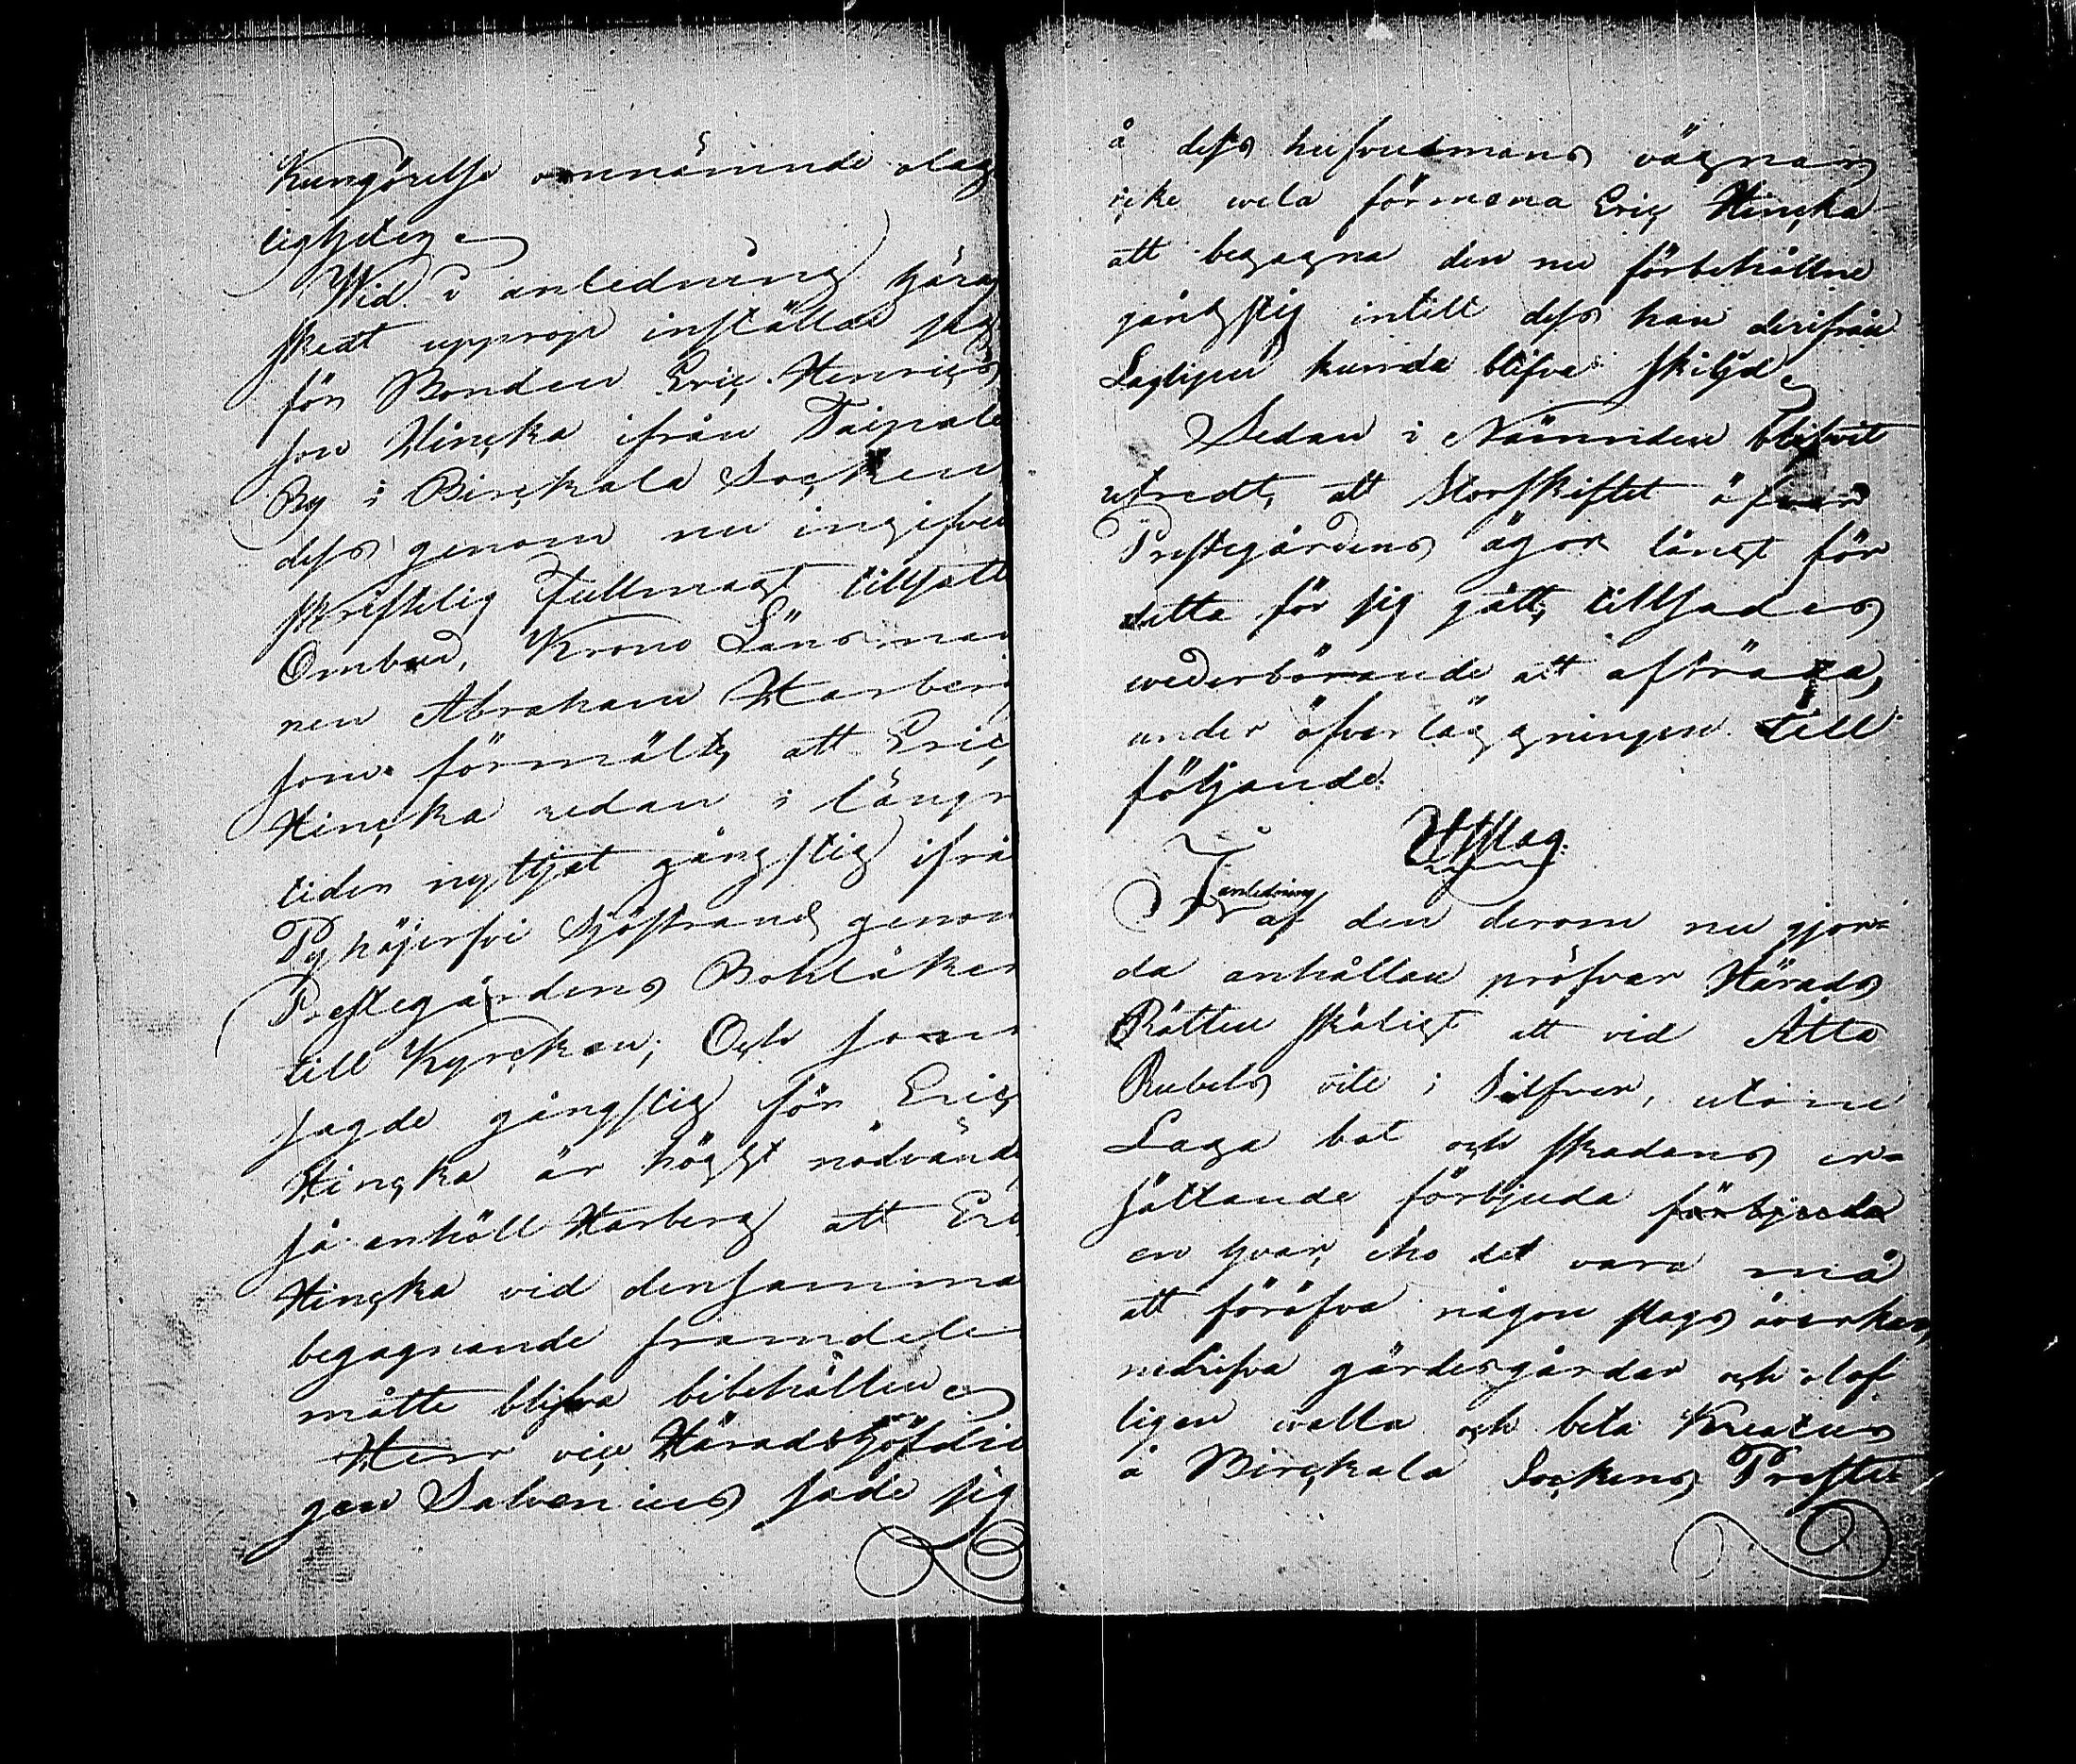 Kungörelse omnämnde olag
ligheten
Wid i anledning häraf
skedt upprop inställde sig
för Bonden Eric Henrics
son Hincka ifrån Taipale
By i Birckala Socken
dess genom nu ingifven
skriftelig Fullmagt tillsatte
Ombud, Krono Länsman
nen Abraham Harberg
som förmälte, att Eric
Hincka redan i längre
tider nyttjat gångstig ifrån
Pyhäjerfvi Sjöstrand genom
Prestegårdens Bohlåker
till Kyrckan; Och som
sagde gångstig för Eric
Hincka är högst nödvändig
så anhöll Harberg att Eric
Hincka vid densamma
begagnande framdeles
måtte blifva bibehållen
Herr vice Häradshöfdin
gen Salvenius sade sig
å dess hufvudmans vägnar
icke wela förmena Eric Hincka
att begagna den nu förbehållne
gångstig intill dess han derifrån
Lagligen kunde blifva skiljd
Sedan i Nämnden blifvit
utredt, att Storskiftet öfver
Prestegårdens ägor långt för
detta för sig gått, tillsades
wederbörande att afträda,
under öfverläggningen till
följande:
Utslag.
I anledning af den derom nu gjor=
da anhållan pröfvar Härads
Rätten skäligt att vid Åtta
Rubels vite i Silfver, utom
Laga bot och skadans er=
sättande förbjuda förbjuda
en hvar, eho det vara må
att föröfva någon slags åverkan,
nedrifva gärdesgårdar och olof
ligen valla och beta Kreatur
å Birckala Sockens Preste